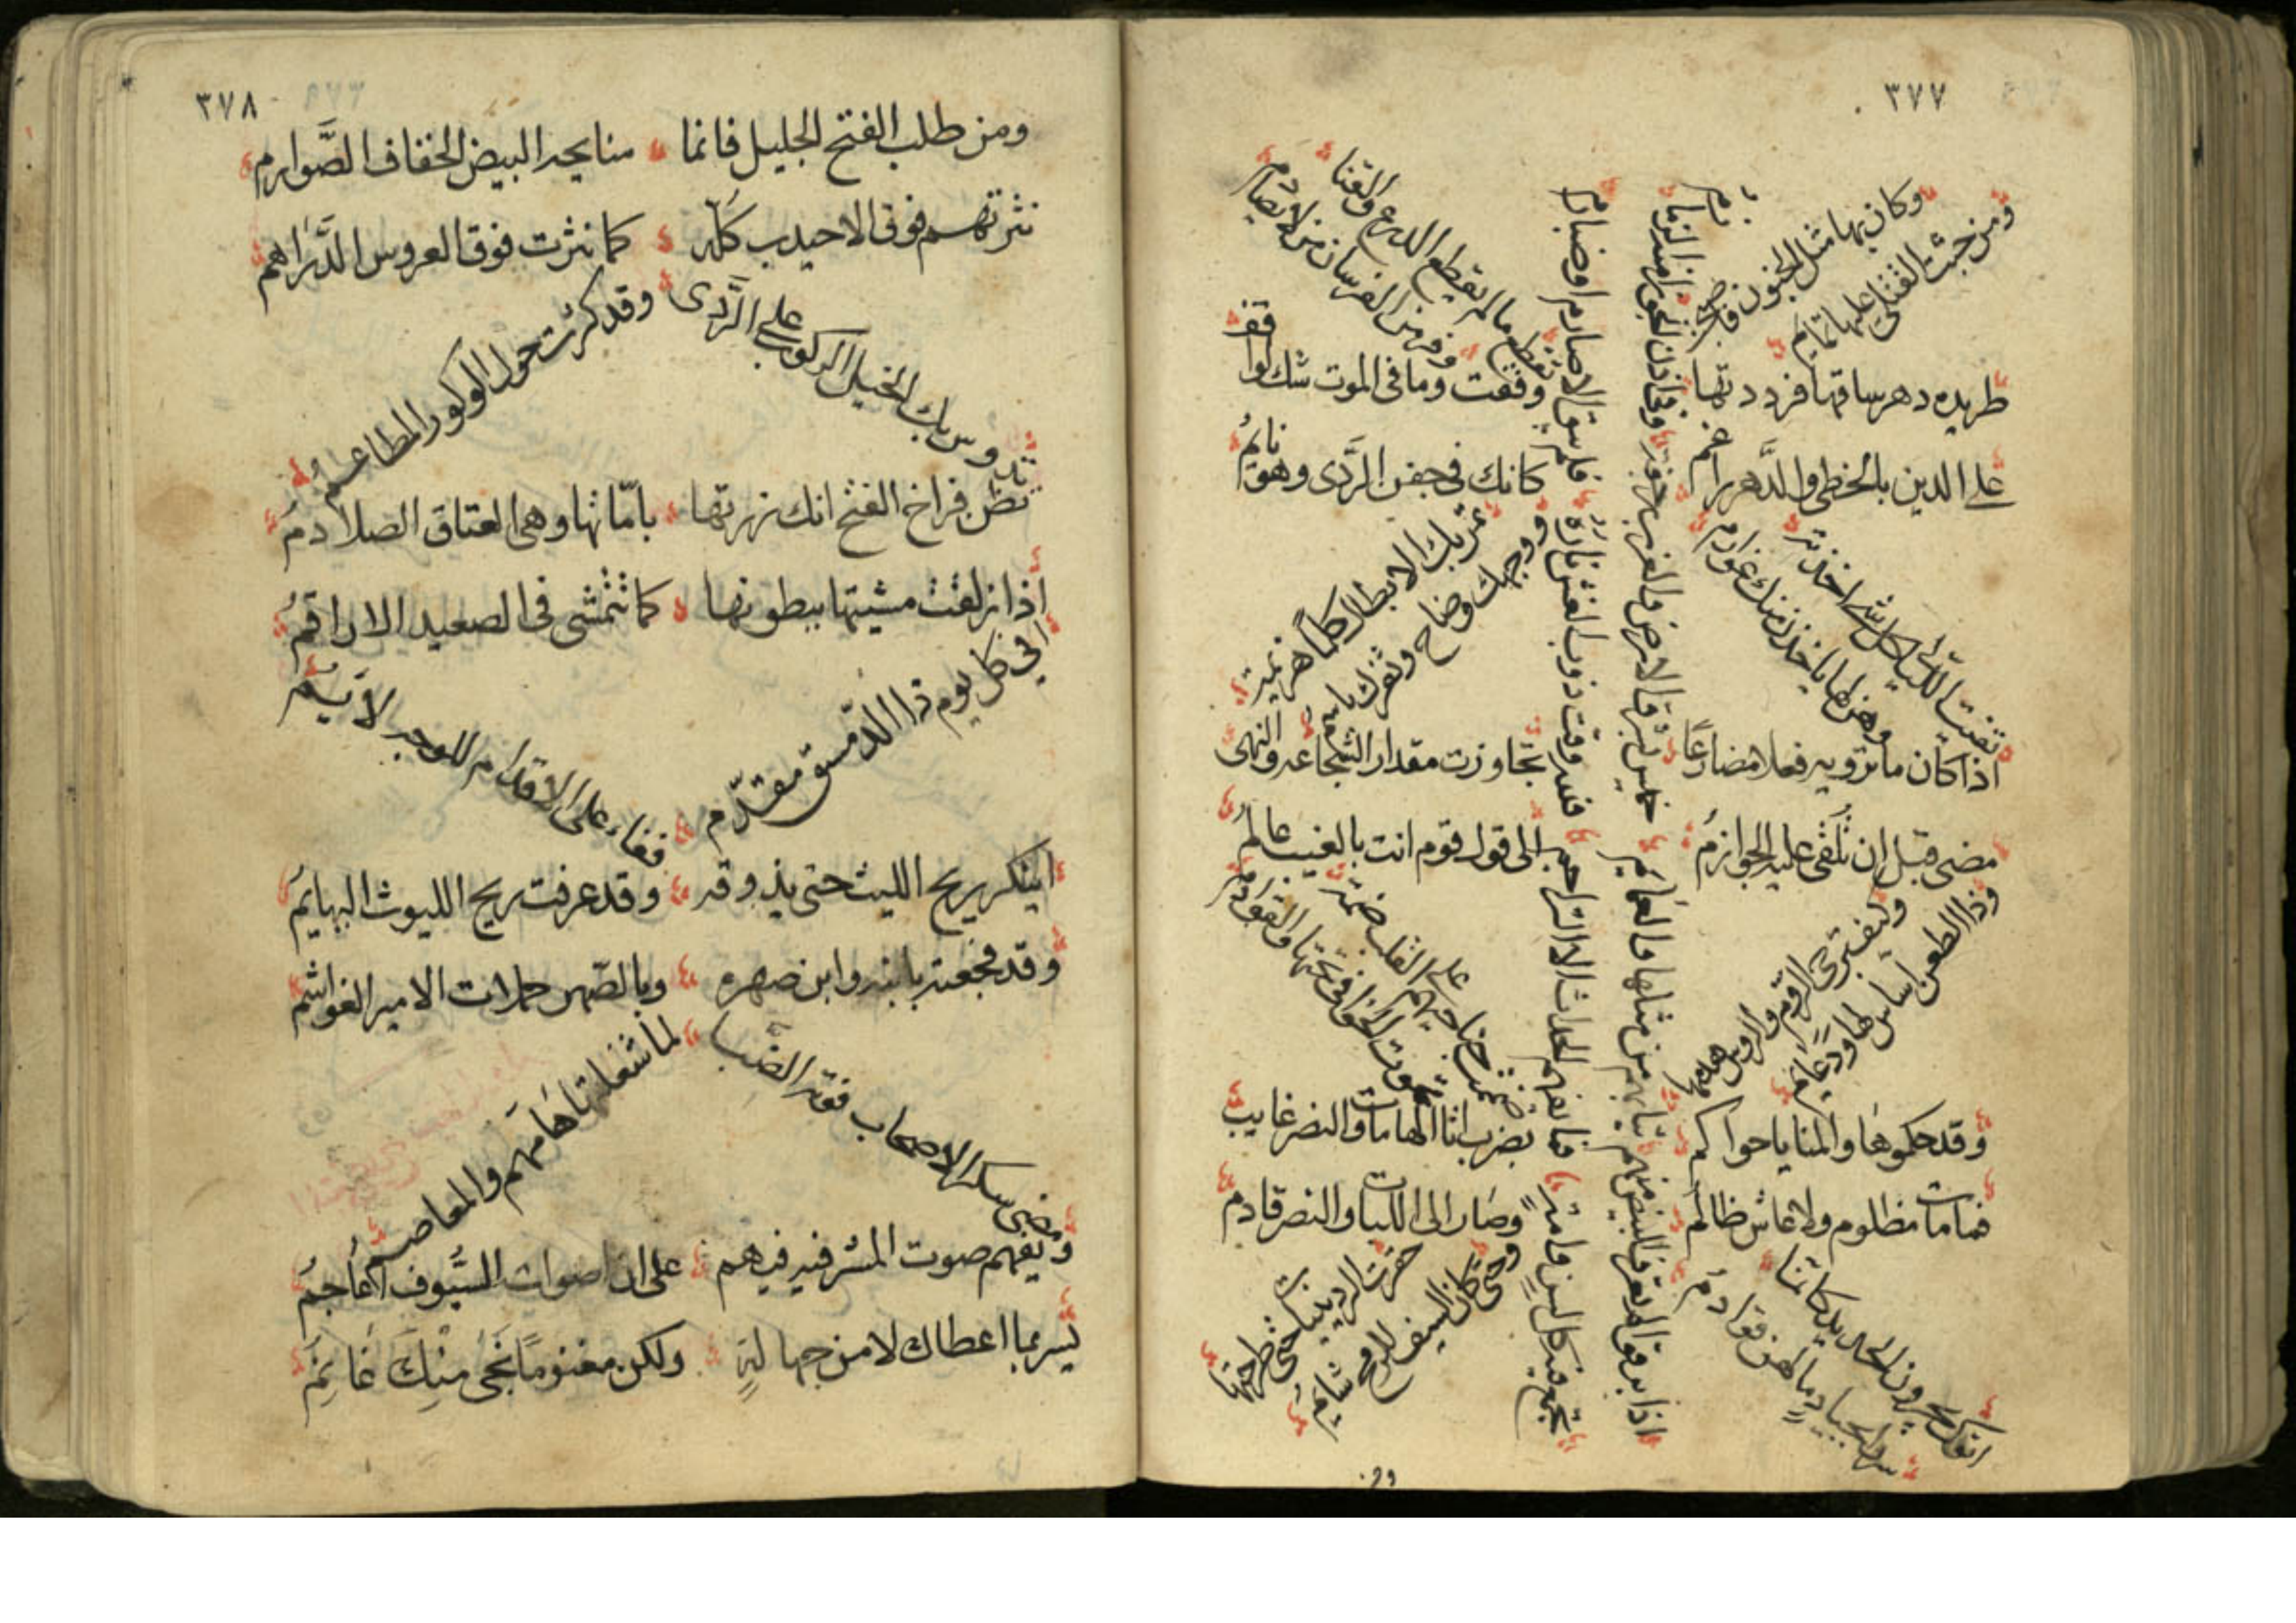 ٣٧٧
وكان بها مثل الجنون فاصبحت
ومن جثث القتلى عليها تمايم
طريده دهر ساقها فرددتها
على الدين بالخطى والدهر راغم
تفيت الليالى كل شئ اخذته
وهن لما ياخذن منك غوارم
اذا كان ما تنويه فعلا مضارعًا
مضى قبل ان تلقى عليه الجوازمُ
وكيف ترجى الروم والروس هدمها
وذا الطعن اساس لها ودعايم
وقد حكموها والمنايا حواكم
فما مات مظلوم ولا عاش ظالم
اتوك يجرون الحديد كانما
سروا بجياد ما لهن قوادم
اذا برقوا لم تعرف البيض منهم
ثيابهم من مثلها والعمايم
خميس بشرق الارض والغرب زحفه
وفى اذن الجوزاء منه زمازم
تجمع فيه كل لسن وامةٍ
فما تفهم الحداث الا التراجم
فلله وقت ذوب الغش ناره
فلم يبق الا صارم او ضبارم
تقطع ما لم يقطع الدرع والقنا
وفر من الفرسان من لا يصادم
وقفت وما فى الموت شك لواقف
كانك فى جفن الردى وهو نايمُ
تمر بك الابطال كلمًا هزيمة
ووجهك وضاح وثغرك باسم
تجاوزت مقدار الشجاعه والنهى
الى قول قوم انت بالغيب عالمُ
ضممت جناحيهم على القلب ضمة
تموت الخوافى تحتها والقوادم
بضرب اتا الهامات والنصر غايب
وصار الى اللبات والنصر قادم
حقرت الردينيات حتى طرحتها
وحتى كان السيف للرمح شاتم
ومن
٣٧٨
ومن طلب الفتح الجليل فانما منا يحه البيض الخفاف الصَّوارم
نثرتهم فوق الاحيدب كله كما نثرت فوق العروس الدَّراهم
تدوس بك الخيل الوكور على الرَّدى وقد كثرت حول الوكور المطاعمُ
تظن فراخ الفتح انك زرتها بامّاتها وهى العتاق الصلادمُ
اذا زلقت مشيتها ببطونها كما تتمشى فى الصعيد الاراقمُ
افى كل يوم ذا الدّمستق مقدّم قفاه على الاقدام للوجه لايم
اينكر ريح الليث حتى يذوقه وقد عرفت ريح الليوث البهايمُ
وقد فجعته بابنه وابن صهره وبالصّهر حملات الامير الغواشم
ومضى يشكر الاصحاب فوته الضبا لما شغلتها هامهم والمعاصم
ويفهم صوت المشرفيه فيهم على ان اصوات السُّيوف اعاجمُ
يسر بما اعطاك لا من جهالةٍ ولكن مغنومًا نجى منك غانمُ